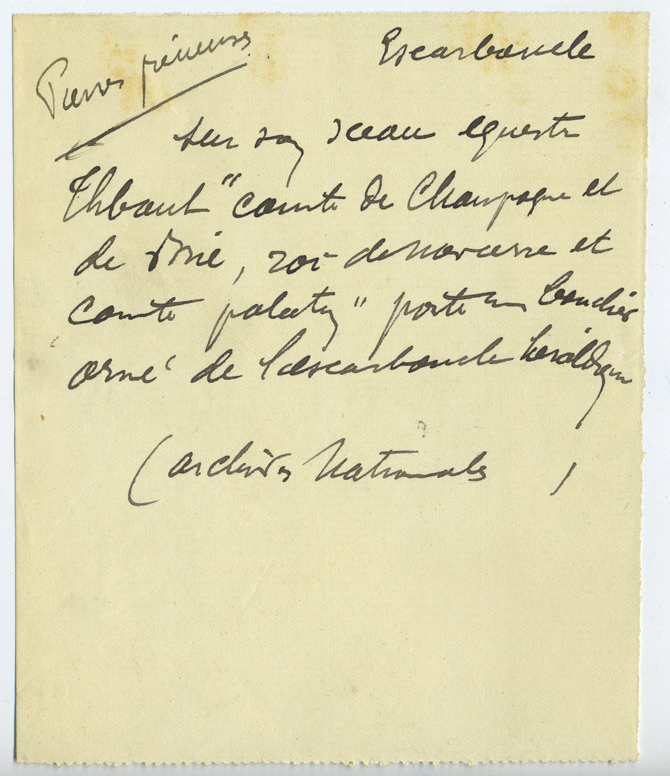 Pierres précieuses
Escarboucle
Sur son sceau equestre
Thibaut "comte de Champagne et
de Brie, roi de Navarre et
comte palatin" porte un bouclier
orné de l'escarboucle héraldique
(archives Nationales)